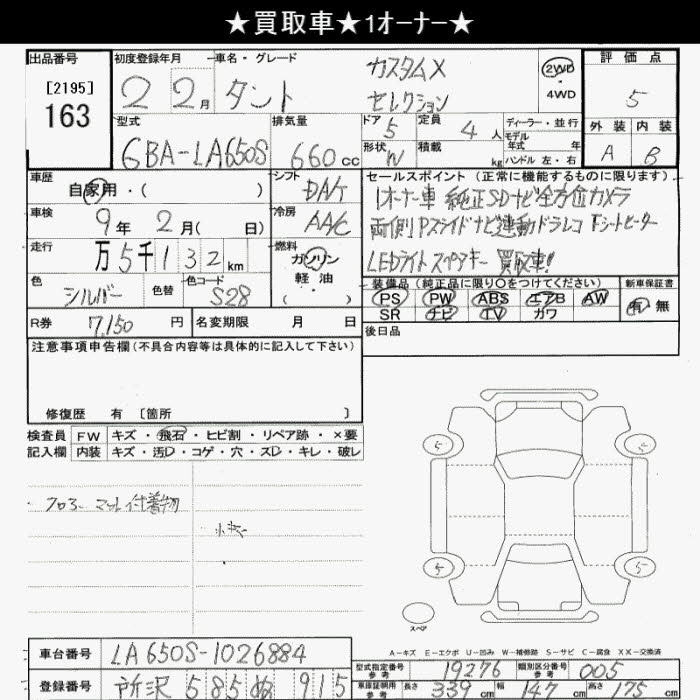 ★買取車★1オーナー★
出品番号 初度登録年月 車名・グレード 評価点
[2195]
163
2 2月 タント カスタムX セレクション
2WD・4WD
5
型式 排気量 ドア 定員 ディーラー・並行
6BA-LA650S 660cc 5 4人
モデル年式 年式
形状 W 積載 kg ハンドル 左・右
外装 内装
A B
車歴 自家用・( )
シフト DAT
セールスポイント(正常に機能するものに限ります)
1オーナー車 純正SDナビ全方位カメラ
両側Pスライドナビ連動ドラレコ Fシートヒーター
LEDライト スペアキー 買取車!
車検 9年2月( 日)
冷房 AAC
走行 万5千132km
燃料 ガソリン・軽油( )
色 シルバー 色替 色コード S28
装備品(純正品に限り○をつけてください) 新車保証書
PS PW ABS エアB AW 有 無
SR ナビ TV カワ
R券 7,150円 名変期限 月 日
後日品
注意事項申告欄(不具合内容等は具体的に記入して下さい)
修復歴 有 [箇所 ]
検査員 FW キズ・飛石・ヒビ割・リペア跡・×要
記入欄 内装 キズ・汚D・コゲ・穴・スD・キレ・破レ
フロアーマット付着物
小キズ
5 5
5 5
スペア
A-キズ E-エクボ U-凹み W-補修跡 S-サビ C-腐食 XX-交換済
車台番号 LA650S-1026884
型式指定番号 参考 19276 類別区分番号 参考 005
登録番号 所沢 585 ぬ 915
車庫証明用 参考 長さ 339cm 幅 147cm 高さ 175cm